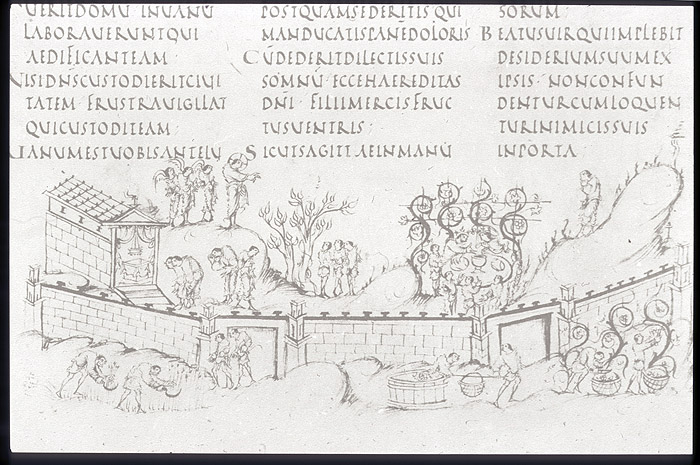 UERITDOMŪ INUANŪ
LABORAUERUNTQUI
AEDIFICANTEAM·
NISIDNSCUSTODIERITCIUI
TATEM· FRUSTRAUIGILAT
QUICUSTODITEAM·
UANUMESTUOBISANTELU
POSTQUAMSEDERITIS QUI
MANDUCATISPANĒDOLORIS
CŪDEDERITDILECTISSUIS
SOMNŪ· ECCEHAEREDITAS
DNI· FILIIMERCISFRUC
TUSUENTRIS·
SICUTSAGITTAEINMANŪ
SORUM·
BEATUSUIRQUIIMPLEBIT
DESIDERIUMSUUMEX
IPSIS· NONCONFUN
DENTURCUMLOQUEN
TURINIMICISSUIS
INPORTA·